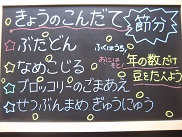 きょうのこんだて
節分
☆ぶたどん
ふくはうち
おには そと
☆なめこじる
年の数だけ
豆をたべよう
☆ブロッコリーのごまあえ
☆せつぶんまめ ぎゅうにゅう